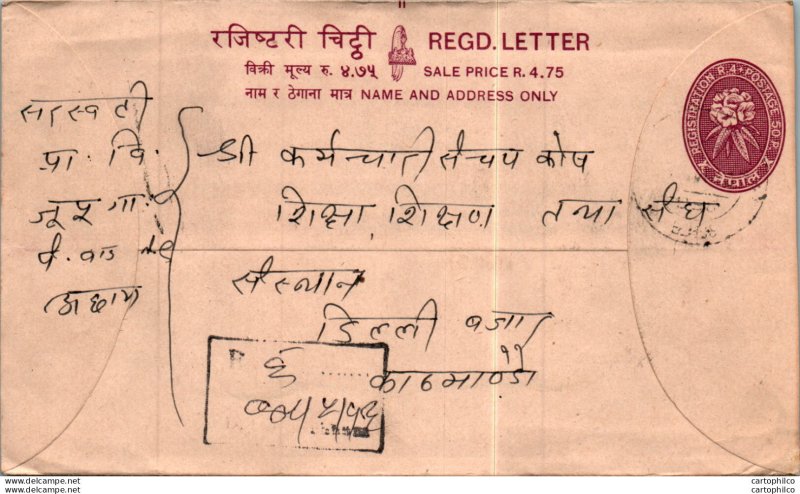 रजिष्टरी चिट्ठी REGD. LETTER
विक्री मूल्य रु. ४.७५ SALE PRICE R. 4.75
नाम र ठेगाना मात्र NAME AND ADDRESS ONLY
REGISTRATION R.4+POSTAGE 50 P.
नेपाल
सरस्वती
प्रा. वि.
श्री कर्मचारी संचय कोष
शिक्षा, शिक्षण तथा संघ
संस्थान
डिल्ली बजार
काठमाण्डौ
अछाम
www.delcampe.net
cartophilco
cartophilco